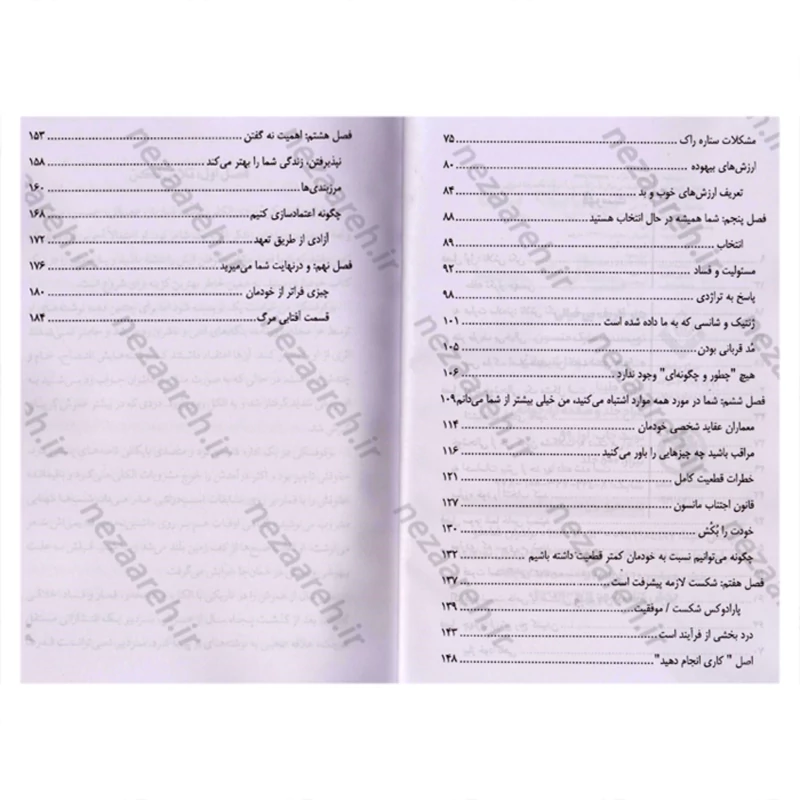 مشکلات ستاره راک ........ ۷۵
ارزش‌های بیهوده ........ ۸۰
تعریف ارزش‌های خوب و بد ........ ۸۴
فصل پنجم: شما همیشه در حال انتخاب هستید ........ ۸۸
انتخاب ........ ۸۹
مسئولیت و فساد ........ ۹۲
پاسخ به تراژدی ........ ۹۸
ژنتیک و شانسی که به ما داده شده است ........ ۱۰۱
مُد قربانی بودن ........ ۱۰۵
هیچ "چطور و چگونه‌ای" وجود ندارد ........ ۱۰۶
فصل ششم: شما در مورد همه موارد اشتباه می‌کنید، من خیلی بیشتر از شما می‌دانم ۱۰۹
معماران عقاید شخصی خودمان ........ ۱۱۴
مراقب باشید چه چیزهایی را باور می‌کنید ........ ۱۱۶
خطرات قطعیت کامل ........ ۱۲۱
قانون اجتناب مانسون ........ ۱۲۷
خودت را بُکُش ........ ۱۳۰
چگونه می‌توانیم نسبت به خودمان کمتر قطعیت داشته باشیم ........ ۱۳۲
فصل هفتم: شکست لازمه پیشرفت است ........ ۱۳۷
پارادوکس شکست / موفقیت ........ ۱۳۹
درد بخشی از فرآیند است ........ ۱۴۳
اصل " کاری انجام دهید" ........ ۱۴۸
فصل هشتم: اهمیت نه گفتن ........ ۱۵۳
نپذیرفتن، زندگی شما را بهتر می‌کند ........ ۱۵۸
مرزبندی‌ها ........ ۱۶۰
چگونه اعتمادسازی کنیم ........ ۱۶۸
آزادی از طریق تعهد ........ ۱۷۲
فصل نهم: و درنهایت شما می‌میرید ........ ۱۷۶
چیزی فراتر از خودمان ........ ۱۸۰
قسمت آفتابی مرگ ........ ۱۸۴
nezaareh.ir